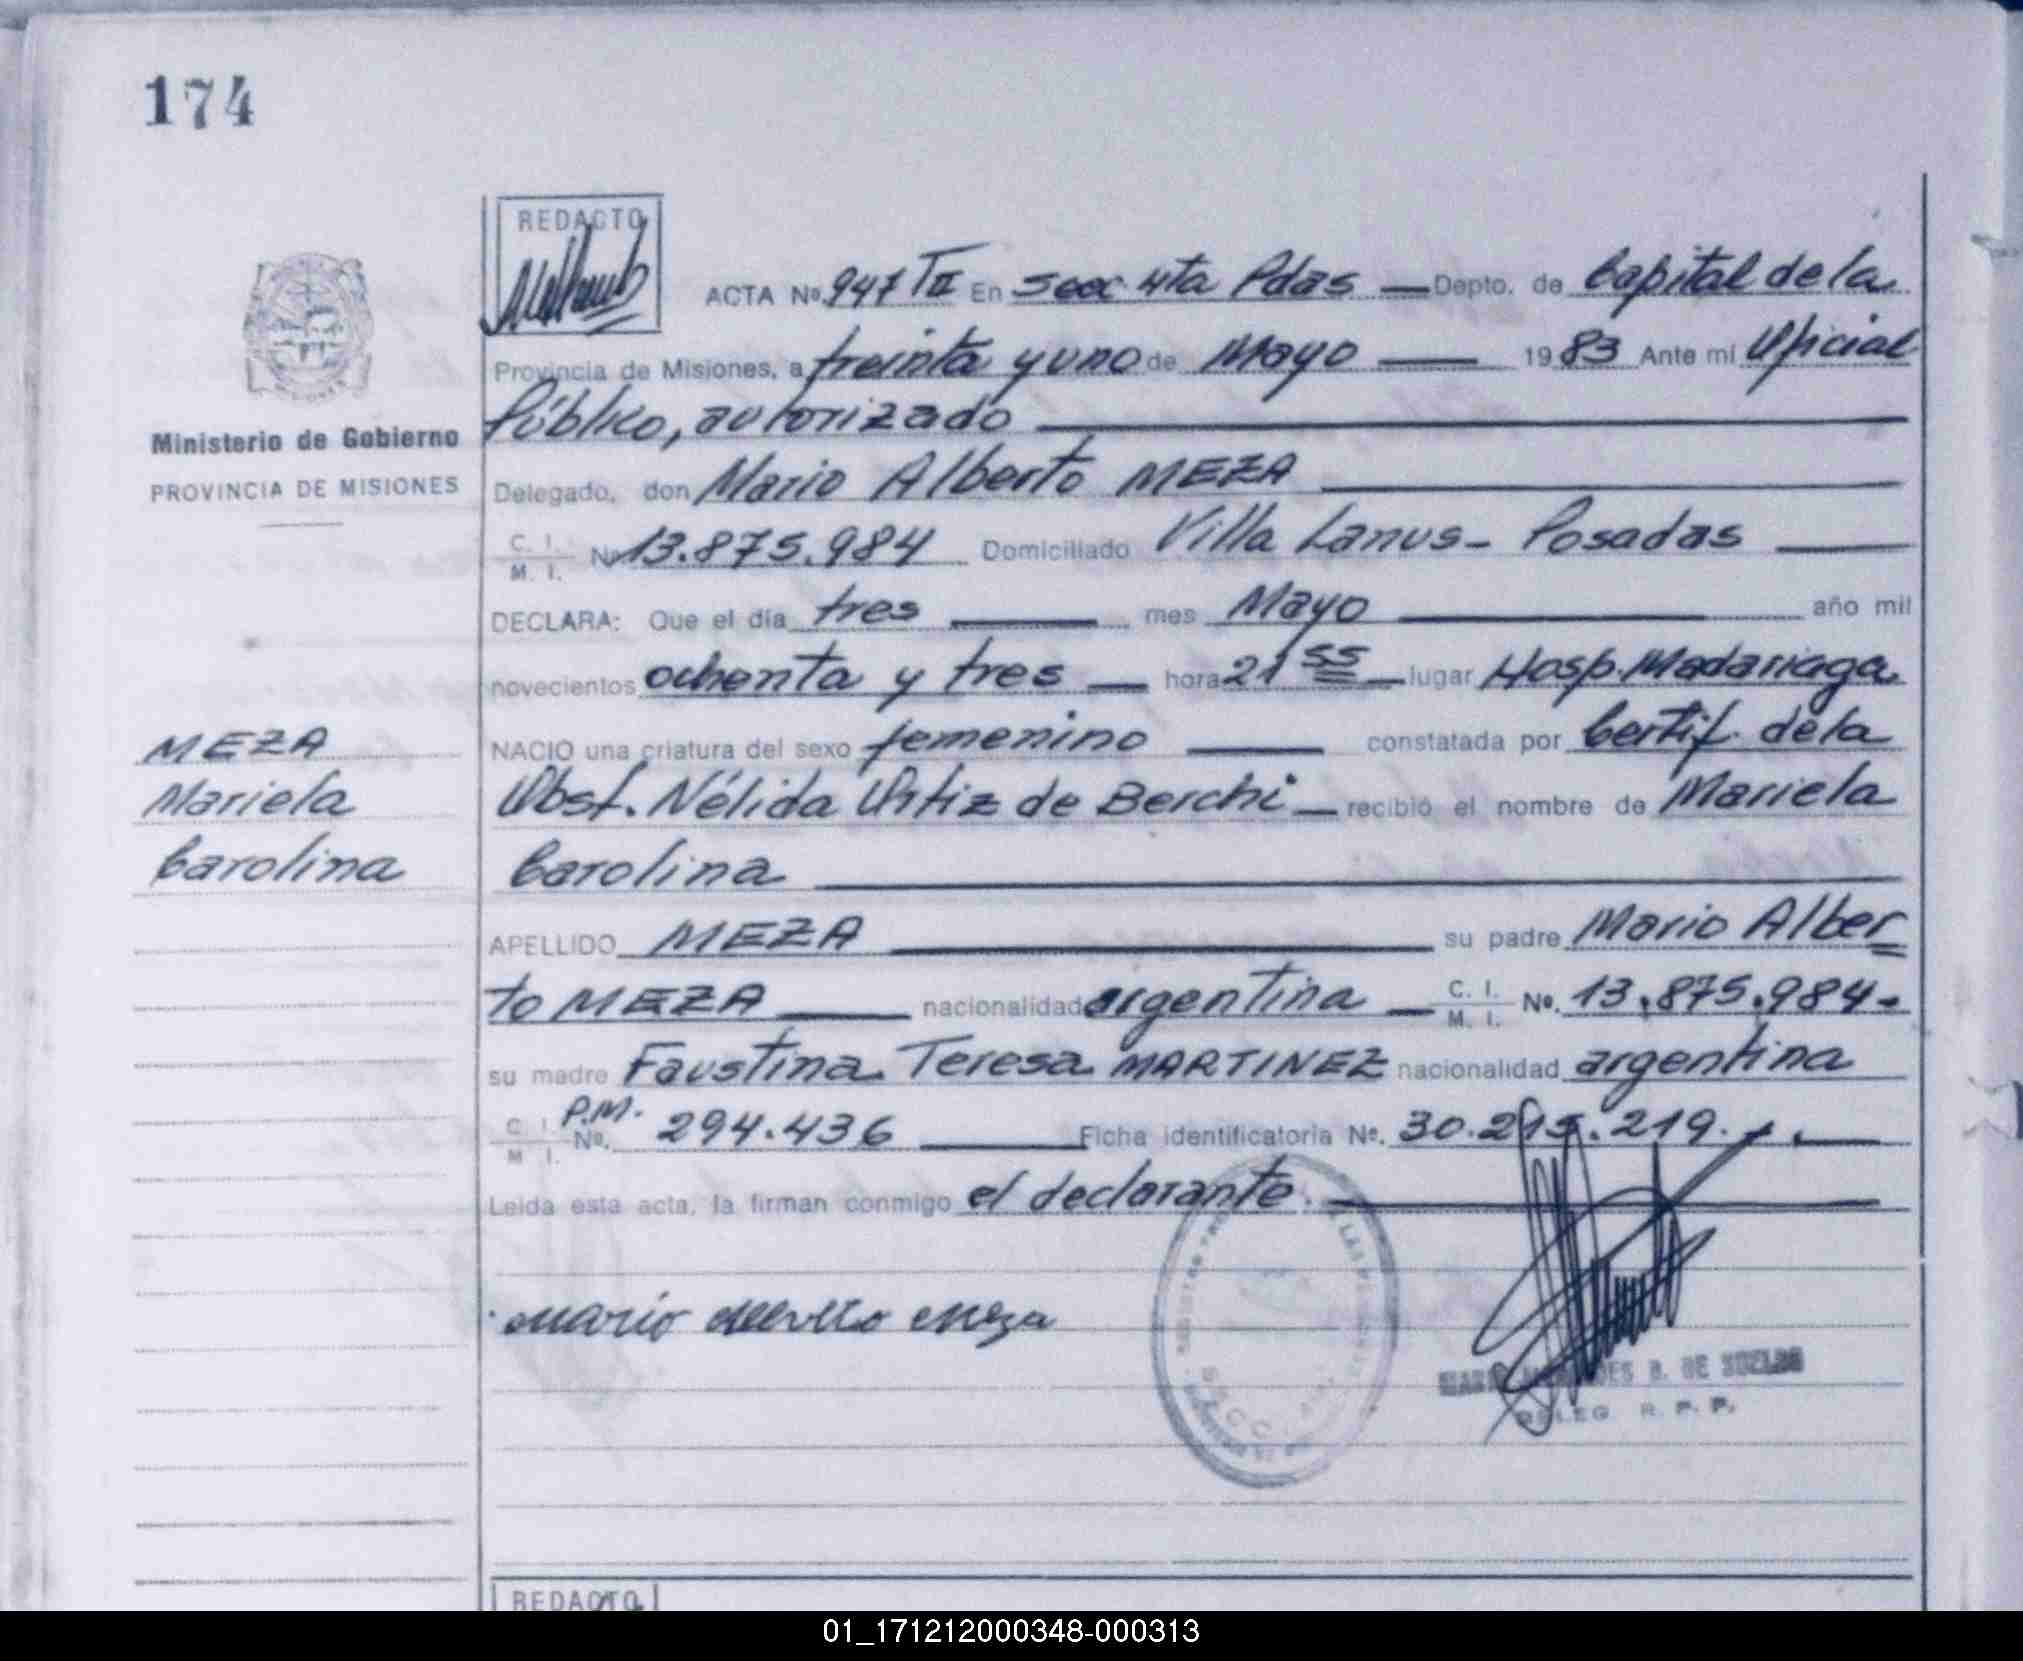 174
REDACTO
ACTA Nº 947 TII En Secc 4ta Pdas — Depto. de Capital de la
Provincia de Misiones, a treinta y uno de Mayo — 1983 Ante mí Oficial
Público, autorizado
Ministerio de Gobierno
PROVINCIA DE MISIONES
Delegado, don Mario Alberto MEZA
C. I. M. I. Nº 13.875.984 Domiciliado Villa Lanus - Posadas
DECLARA: Que el día tres — mes Mayo — año mil
novecientos ochenta y tres — hora 21 55 — lugar Hosp. Madariaga
NACIO una criatura del sexo femenino — constatada por Certif. de la
Obst. Nélida Ortiz de Berchi — recibió el nombre de Mariela
Carolina
MEZA
Mariela
Carolina
APELLIDO MEZA — su padre Mario Alber
to MEZA — nacionalidad argentina — C. I. M. I. Nº. 13.875.984.
su madre Faustina Teresa MARTINEZ nacionalidad argentina
C. I. M. I. P.M. Nº. 294.436 — Ficha identificatoria Nº. 30.215.219.
Leída esta acta, la firman conmigo el declarante.
Mario Alberto Meza
DE SUELDO
DELEG. R. P. P.
REDACTO
01_171212000348-000313